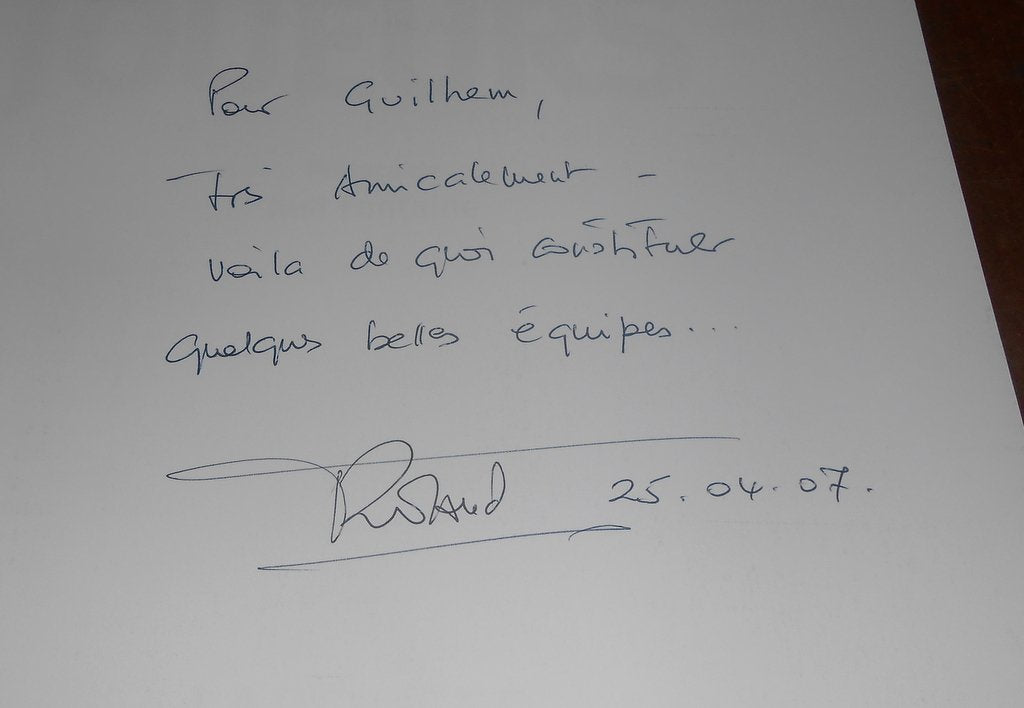 Pour Guilhem,
très Amicalement –
voilà de quoi constituer
quelques belles équipes...
Roland 25.04.07.